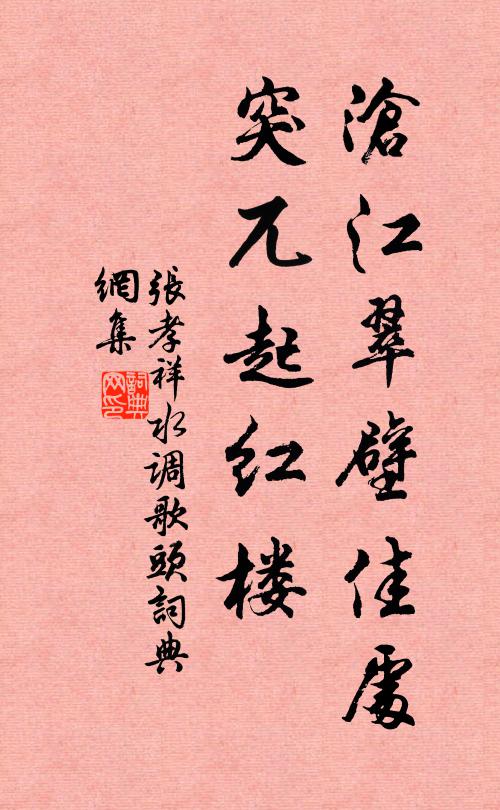 滄江翠壁佳處
突兀起红楼
張孝祥水调歌頭詞典
網集
詞典
网印